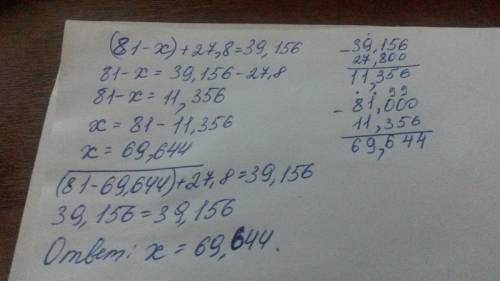 (81-x)+27,8=39,156
81-x=39,156-27,8
81-x=11,356
x=81-11,356
x=69,644
(81-69,644)+27,8=39,156
39,156=39,156
Ответ: x=69,644.
-39,156
27,800
11,356
99
-81,000
11,356
69,644